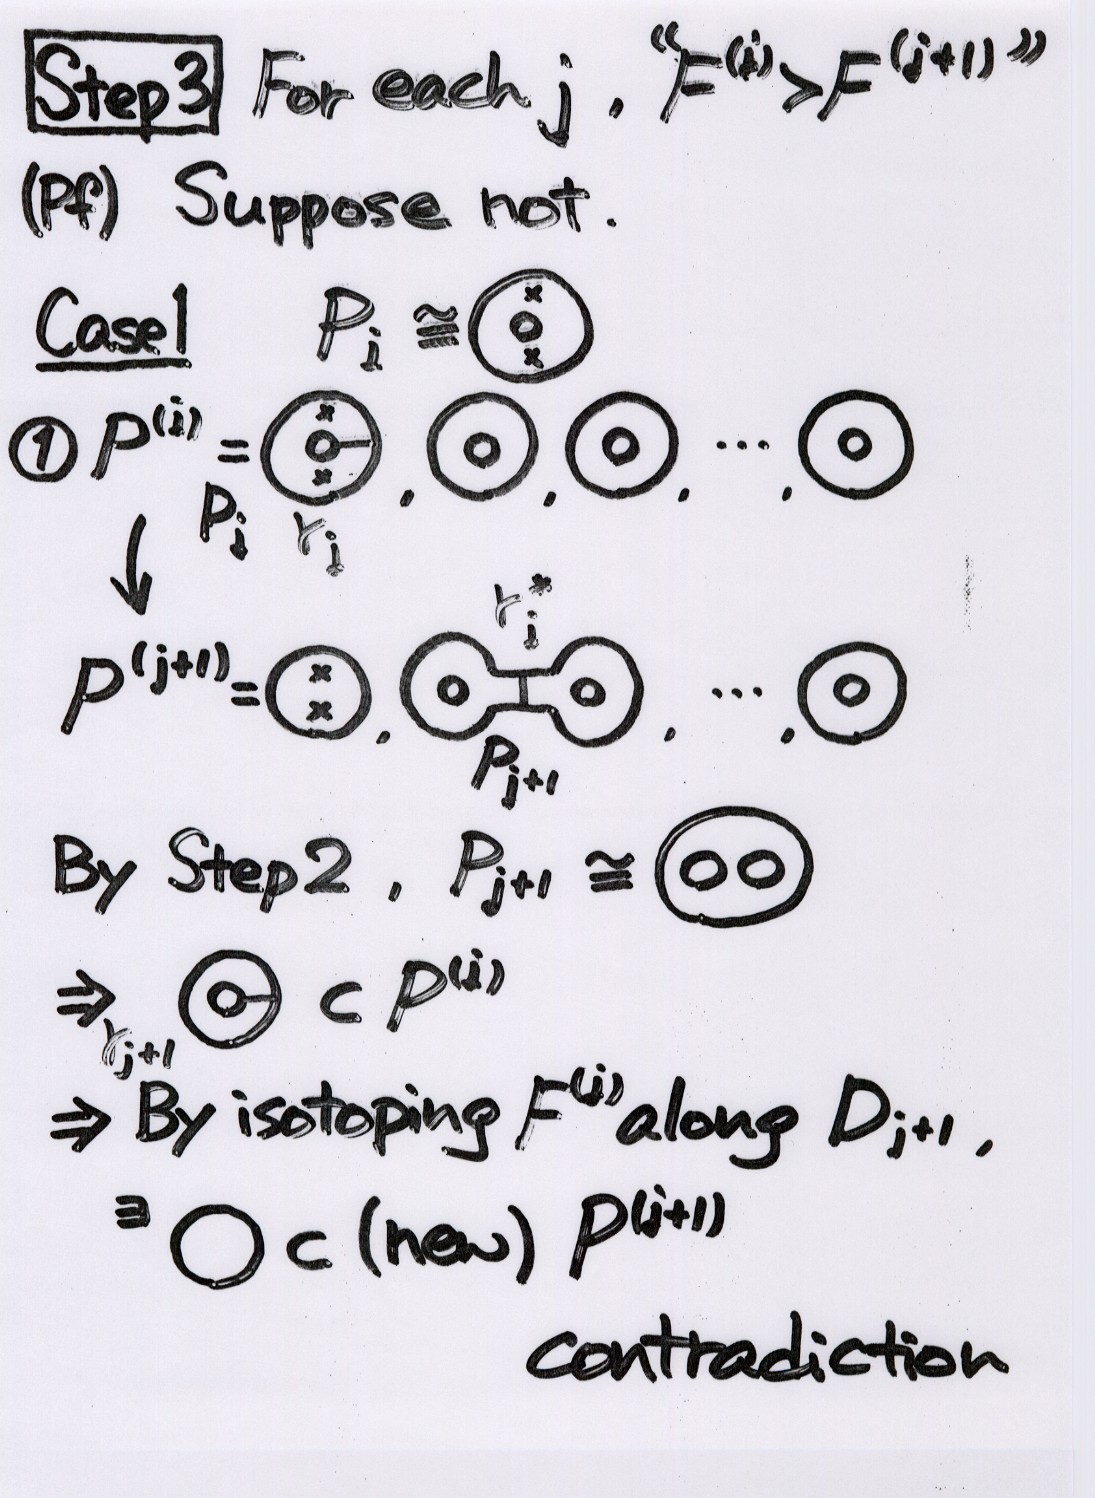 Step3 For each j, "F^(j) > F^(j+1)"
(Pf) Suppose not.
Case1 P_j ≅
① P^(j) = , , , ... ,
P_j γ_j
γ_j^*
P^(j+1) = , , ... ,
P_j+1
By Step2, P_j+1 ≅
⇒ ⊂ P^(j)
γ_j+1
⇒ By isotoping F^(j) along D_j+1,
∃ ◯ ⊂ (new) P^(j+1)
contradiction